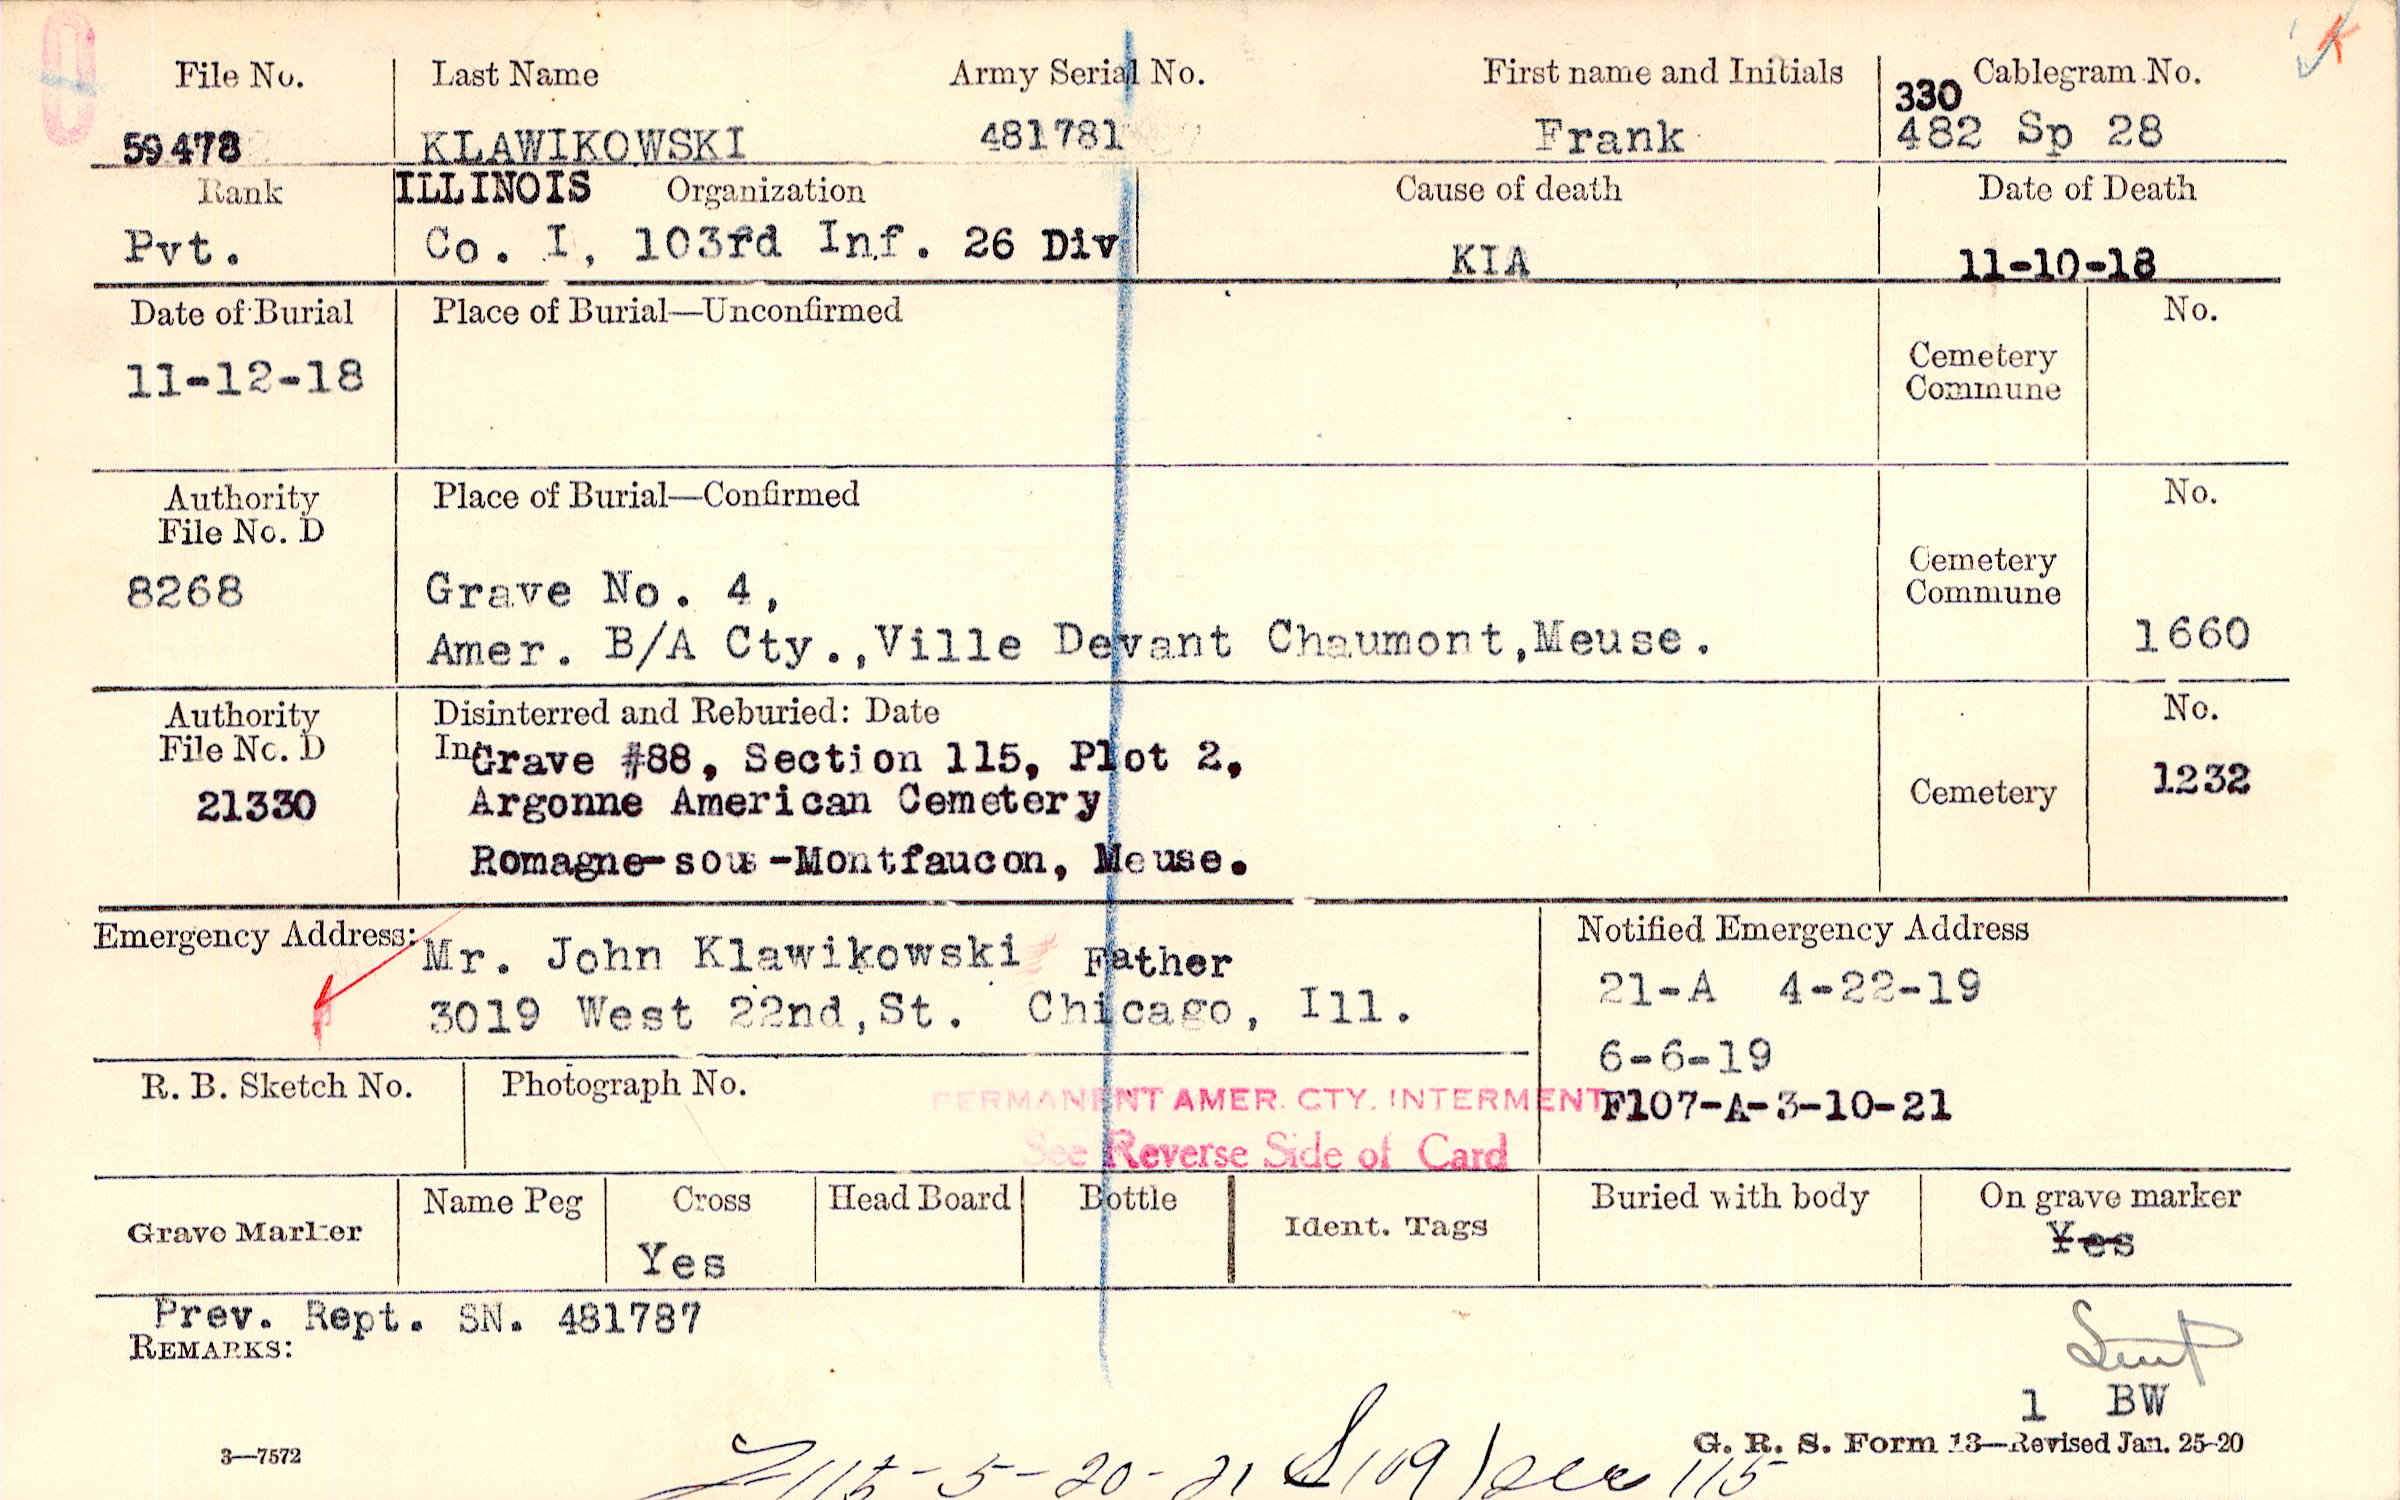 File No. Last Name Army Serial No. First name and Initials Cablegram No.
330
59478 KLAWIKOWSKI 481781 Frank 482 Sp 28
Rank ILLINOIS Organization Cause of death Date of Death
Pvt. Co. I, 103rd Inf. 26 Div KIA 11-10-18
Date of Burial Place of Burial—Unconfirmed No.
11-12-18 Cemetery
Commune
Authority Place of Burial—Confirmed No.
File No. D
8268 Grave No. 4, Cemetery
Commune
Amer. B/A Cty.,Ville Devant Chaumont,Meuse. 1660
Authority Disinterred and Reburied: Date No.
File No. D In Grave #88, Section 115, Plot 2, 1232
21330 Argonne American Cemetery Cemetery
Romagne-sous-Montfaucon, Meuse.
Emergency Address: Mr. John Klawikowski Father Notified Emergency Address
3019 West 22nd,St. Chicago, Ill. 21-A 4-22-19
6-6-19
R. B. Sketch No. Photograph No. F107-A-3-10-21
PERMANENT AMER. CTY. INTERMENT
See Reverse Side of Card
Grave Marker Name Peg Cross Head Board Bottle Ident. Tags Buried with body On grave marker
Yes Yes
Prev. Rept. SN. 481787
REMARKS:
1 BW
3—7572 G. R. S. Form 13—Revised Jan. 25-20
115-5-20-21 115